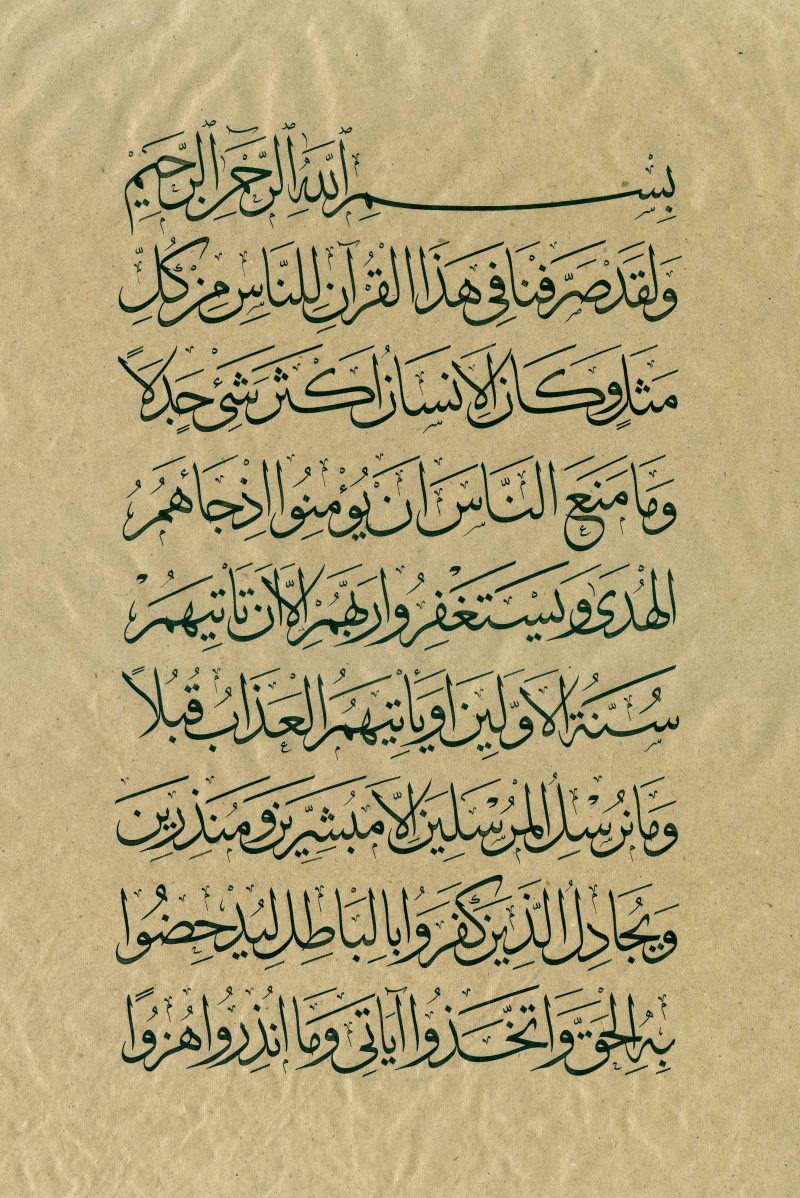 بِسْمِ ٱللَّهِ ٱلرَّحْمَنِ ٱلرَّحِيمِ
وَلَقَدْ صَرَّفْنَا فِي هَذَا الْقُرْآنِ لِلنَّاسِ مِنْ كُلِّ
مَثَلٍ وَكَانَ الْاِنْسَانُ اَكْثَرَ شَيْءٍ جَدَلًا
وَمَا مَنَعَ النَّاسَ اَنْ يُؤْمِنُوا اِذْ جَاۤءَهُمُ
الْهُدَى وَيَسْتَغْفِرُوا رَبَّهُمْ اِلَّا اَنْ تَاْتِيَهُمْ
سُنَّةُ الْاَوَّلِينَ اَوْ يَأْتِيَهُمُ الْعَذَابُ قُبُلًا
وَمَا نُرْسِلُ الْمُرْسَلِينَ اِلَّا مُبَشِّرِينَ وَمُنْذِرِينَ
وَيُجَادِلُ الَّذِينَ كَفَرُوا بِالْبَاطِلِ لِيُدْحِضُوا
بِهِ الْحَقَّ وَاتَّخَذُوا آيَاتِي وَمَا اُنْذِرُوا هُزُوًا